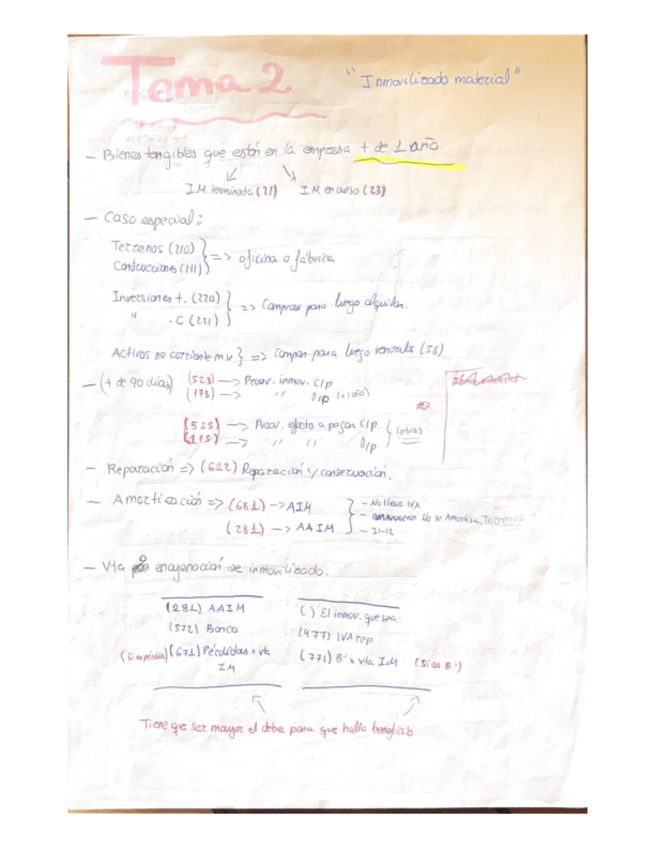 Tema 2
"Inmovilizado material"
- Bienes tangibles que están en la empresa + de 1 año
IM terminado (21) IM en curso (23)
- Caso especial:
Terrenos (210)
Construcciones (211) } => oficina o fábrica
Inversiones t. (220)
" . C (221) } => Comprar para luego alquilar.
Activos no corriente m.v } => Compran para luego venderlos (58)
- (+ de 90 días) (523) -> Proov. inmov. C/p
(173) -> " D/p (+1 año)
(525) -> Proov. efecto a pagar C/p
(175) -> " " D/p } letras
- Reparación => (622) Reparación y conservación.
- Amortización => (681) -> AIM
(281) -> AAIM
- No lleva IVA
- No se Amortiza, Terrenos
- 31-12
- Vta o enajenación de inmovilizado.
(281) AAIM ( ) El inmov. que sea
(572) Banco (477) IVA rep
(Si es pérdida) (671) Pérdidas x vta IM (771) Bº x vta IM (Si es Bº)
Tiene que ser mayor el debe para que halla beneficio